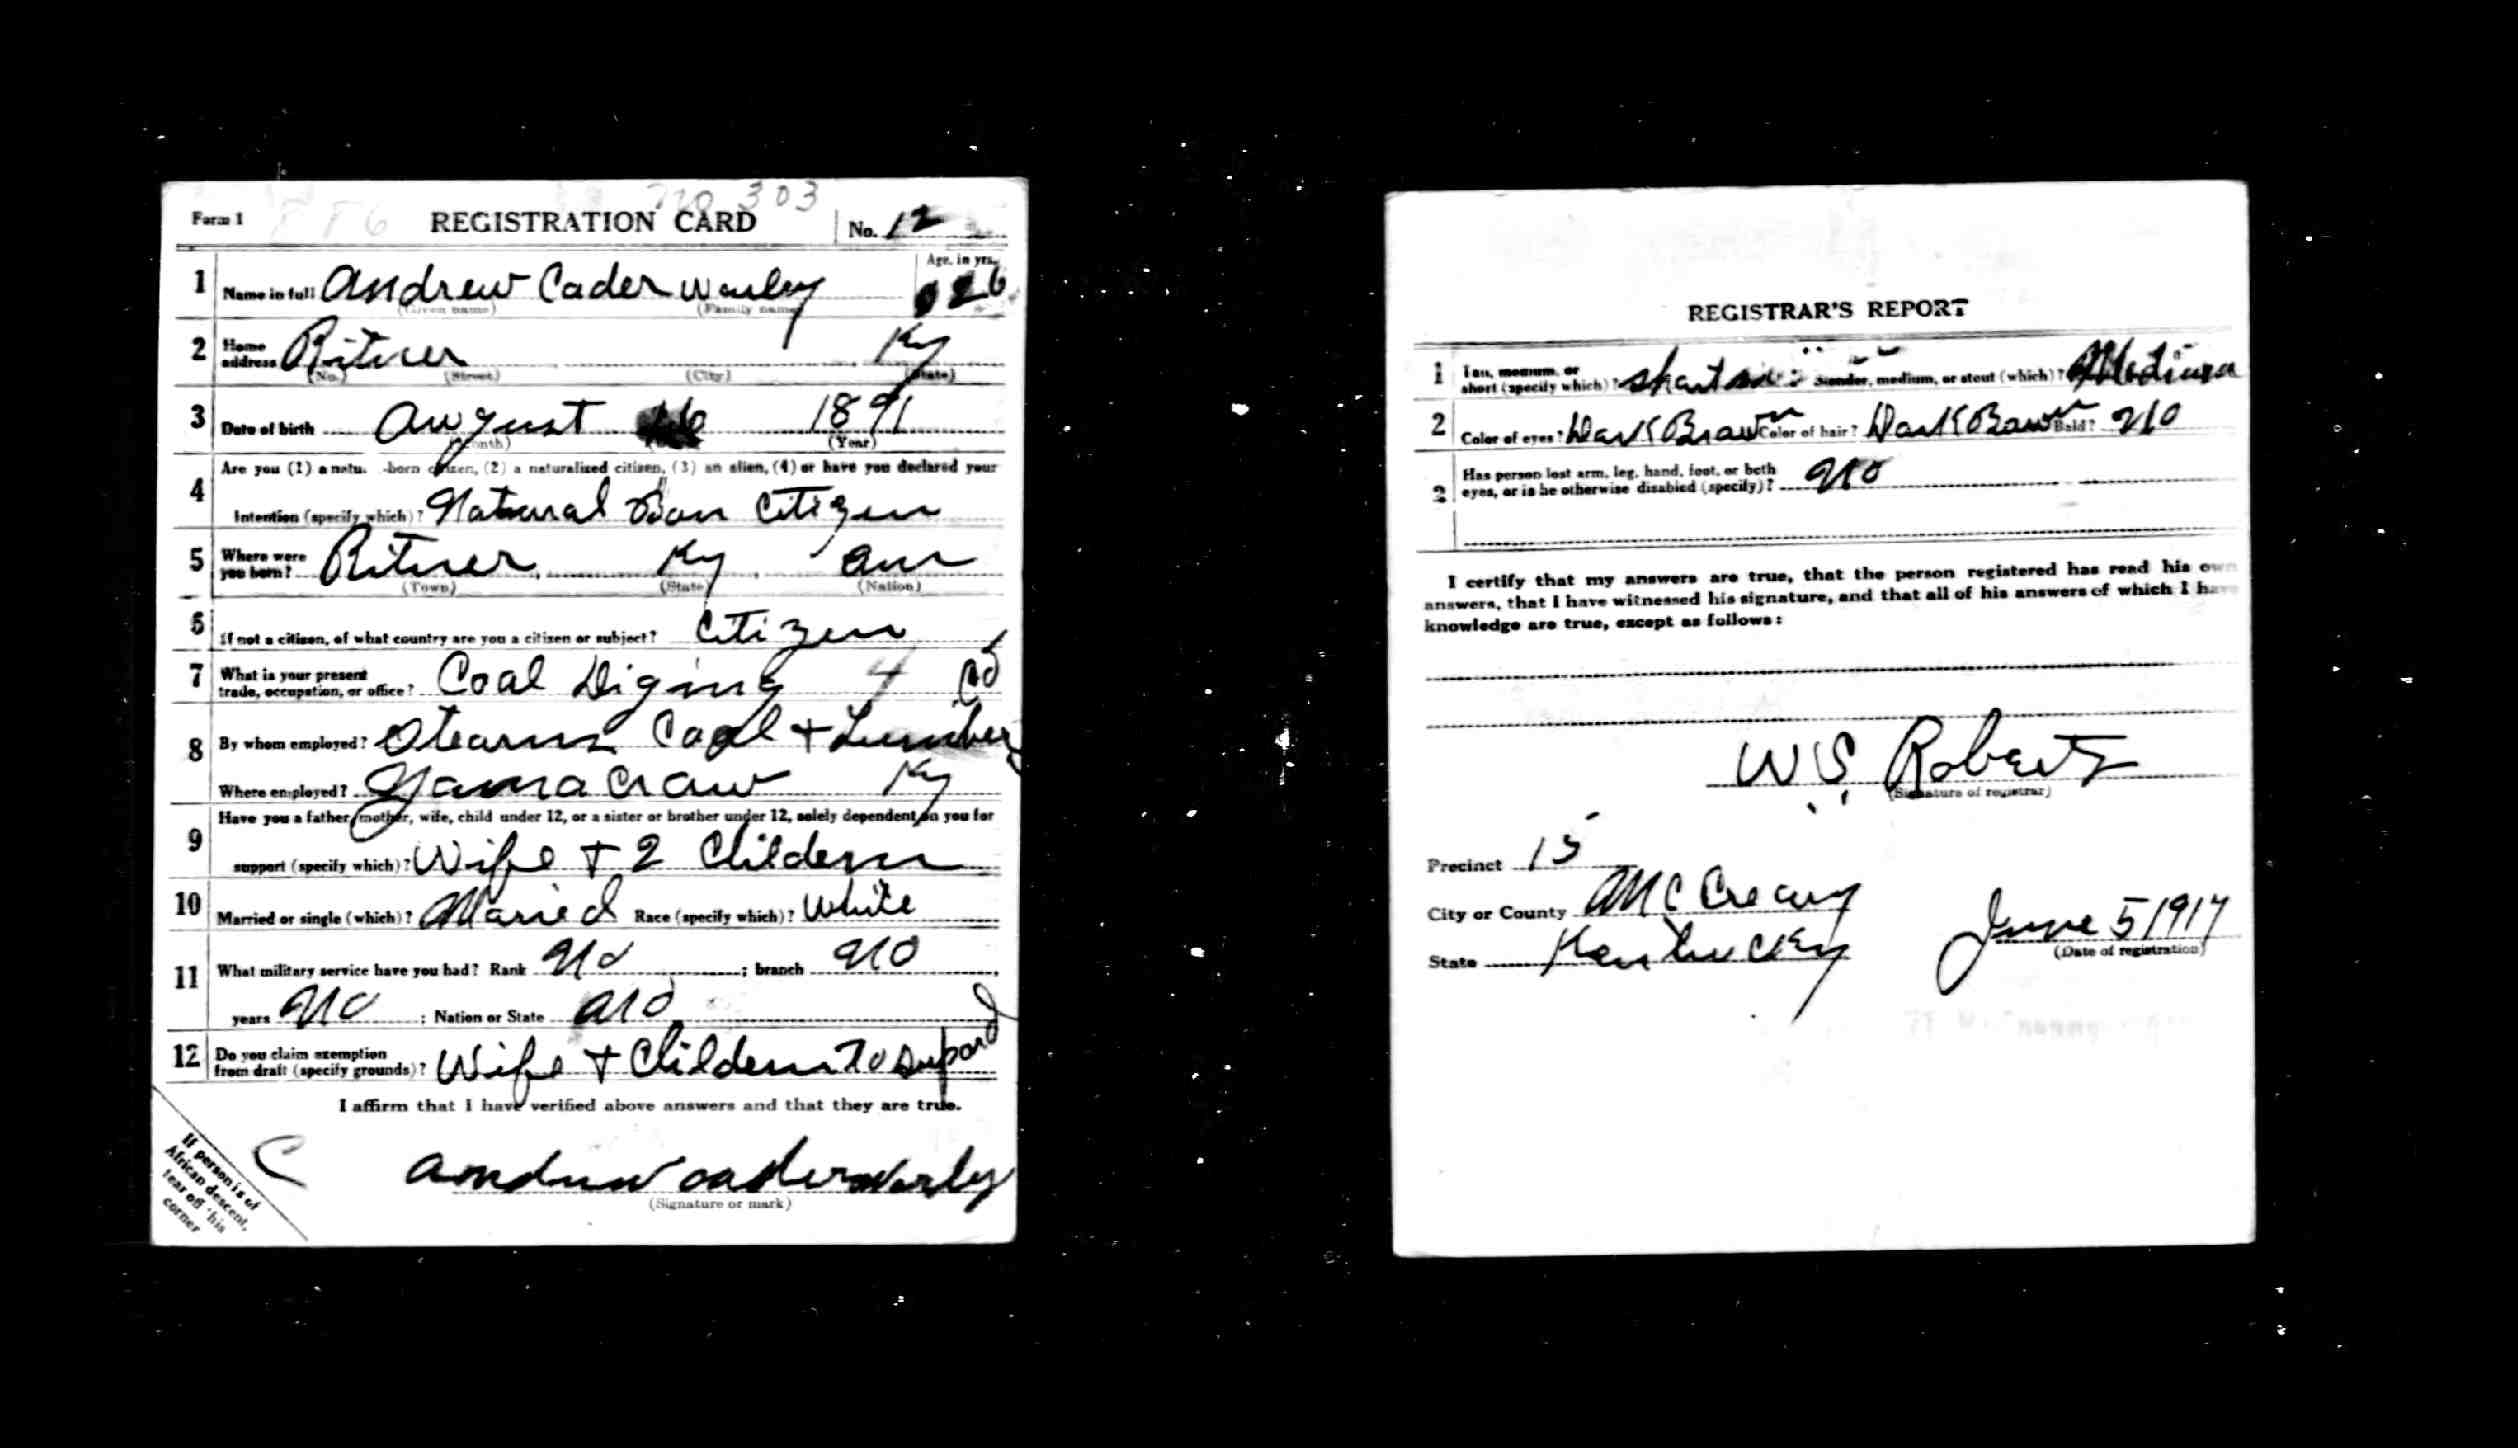 Form 1 REGISTRATION CARD No. 12
303
1 Name in full Andrew Cader Worley Age, in yrs. 26
(Given name) (Family name)
2 Home address Ritner Ky
(No.) (Street) (City) (State)
3 Date of birth August 1891
(Month) (Year)
Are you (1) a natu -born citizen, (2) a naturalized citizen, (3) an alien, (4) or have you declared your
4 Intention (specify which)? Natural Bon Citizen
5 Where were you born? Ritner, Ky, am
(Town) (State) (Nation)
6 If not a citizen, of what country are you a citizen or subject? Citizen
7 What is your present trade, occupation, or office? Coal Diging 4 Co
8 By whom employed? Stearns Coal + Lumber
Where employed? Yamacraw Ky
9 Have you a father, mother, wife, child under 12, or a sister or brother under 12, solely dependent on you for
support (specify which)? Wife + 2 Childern
10 Married or single (which)? Maried Race (specify which)? White
11 What military service have you had? Rank No ; branch No ,
years No ; Nation or State No
12 Do you claim exemption from draft (specify grounds)? Wife + Childern To Supord
I affirm that I have verified above answers and that they are true.
Andrew Cader Worley
(Signature or mark)
If person is of
African descent,
tear off this
corner
C
REGISTRAR'S REPORT
1 Tall, medium, or short (specify which)? Short Slender, medium, or stout (which)? Medium
2 Color of eyes? Dark Brawn Color of hair? Dark Bawn Bald? No
3 Has person lost arm, leg, hand, foot, or both
eyes, or is he otherwise disabled (specify)? No
I certify that my answers are true, that the person registered has read his own
answers, that I have witnessed his signature, and that all of his answers of which I have
knowledge are true, except as follows:
W S Roberts
(Signature of registrar)
Precinct 15
City or County McCreary
State Kentucky June 5 1917
(Date of registration)